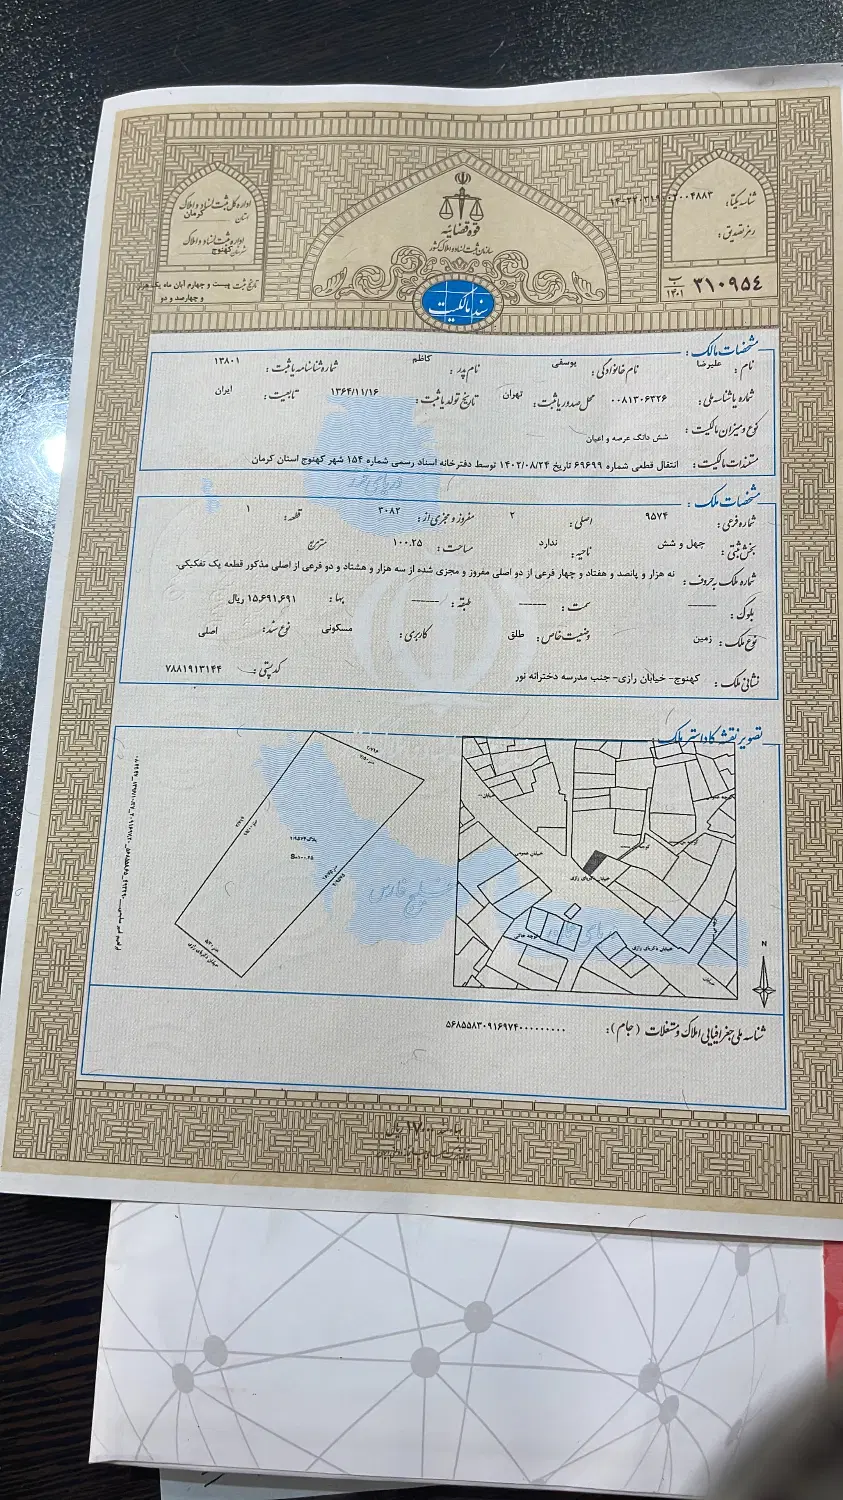 اداره کل ثبت اسناد و املاک
استان کرمان
اداره ثبت اسناد و املاک
شهرستان کهنوج
تاریخ ثبت بیست و چهارم آبان ماه یک هزار
و چهارصد و دو
قوه قضائیه
سازمان ثبت اسناد و املاک کشور
سند مالکیت
شناسه یکتا:
رمز تصدیق:
۳۱۰۹۵۴ ب ۱۴۰۱
مشخصات مالک:
نام: علیرضا نام خانوادگی: یوسفی نام پدر: کاظم شماره شناسنامه یا ثبت: ۱۳۸۰۱
شماره یا شناسه ملی: ۰۰۸۱۳۰۶۳۲۶ محل صدور یا ثبت: تهران تاریخ تولد یا ثبت: ۱۳۶۴/۱۱/۱۶ تابعیت: ایران
نوع و میزان مالکیت: شش دانگ عرصه و اعیان
مستندات مالکیت: انتقال قطعی شماره ۶۹۶۹۹ تاریخ ۱۴۰۲/۰۸/۲۴ توسط دفترخانه اسناد رسمی شماره ۱۵۴ شهر کهنوج استان کرمان
مشخصات ملک:
شماره فرعی: ۹۵۷۴ اصلی: ۲ مفروز و مجزی از: ۳۰۸۲ قطعه: ۱
بخش ثبتی: چهل و شش ناحیه: ندارد مساحت: ۱۰۰.۲۵ مترمربع
شماره ملک به حروف: نه هزار و پانصد و هفتاد و چهار فرعی از دو اصلی مفروز و مجزی شده از سه هزار و هشتاد و دو فرعی از اصلی مذکور قطعه یک تفکیکی.
بلوک: ------ سمت: ------ طبقه: ------ بها: ۱۵,۶۹۱,۶۹۱ ریال
نوع ملک: زمین وضعیت خاص: طلق کاربری: مسکونی نوع سند: اصلی
نشانی ملک: کهنوج- خیابان رازی- جنب مدرسه دخترانه نور کد پستی: ۷۸۸۱۹۱۳۱۴۴
تصویر نقشه کاداستر ملک:
S=۱۰۰.۲۵
خیابان ذکریای رازی
خیابان عمومی
خیابان ذکریای رازی
کوچه خاکی
خیابان ذکریای رازی
N
دریای خزر
خلیج فارس
شناسه ملی جغرافیایی املاک و مستغلات (جام): ۵۶۸۵۵۸۳۰۹۱۶۹۷۴۰۰۰۰۰۰۰۰۰۰